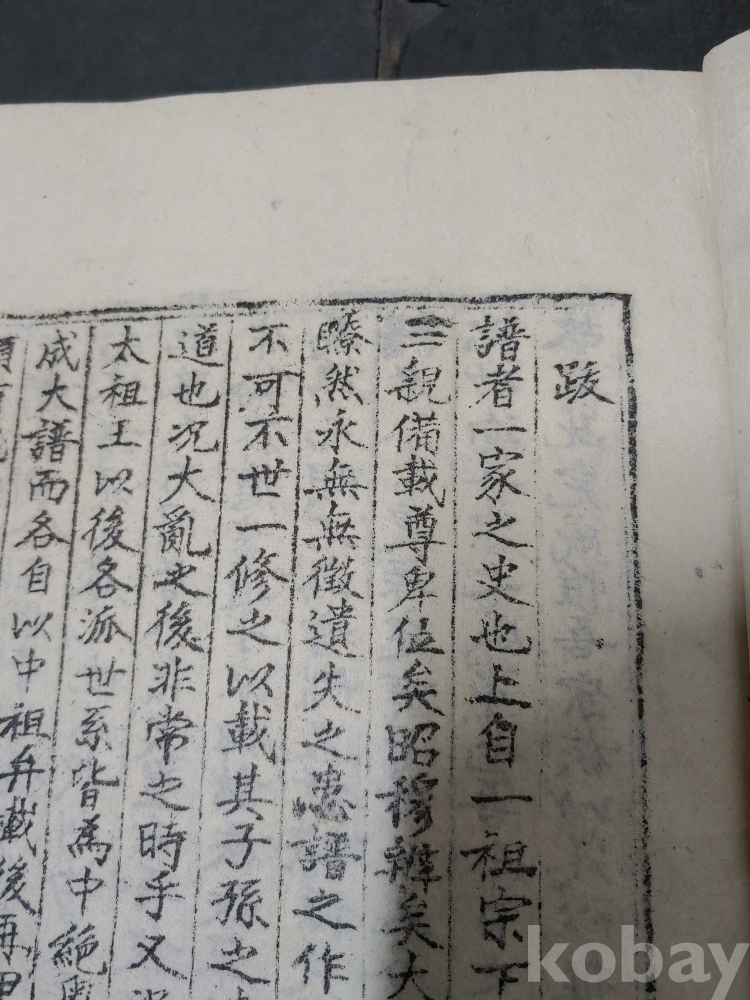 跋
譜者一家之史也上自一祖宗下
三親備載尊卑位矣昭穆辨矣大
瞭然永無無徵遺失之患譜之作
不可不世一修之以載其子孫之
道也况大亂之後非常之時乎又
太祖王以後各派世系皆爲中絶
成大譜而各自以中祖弁載後再
kobay